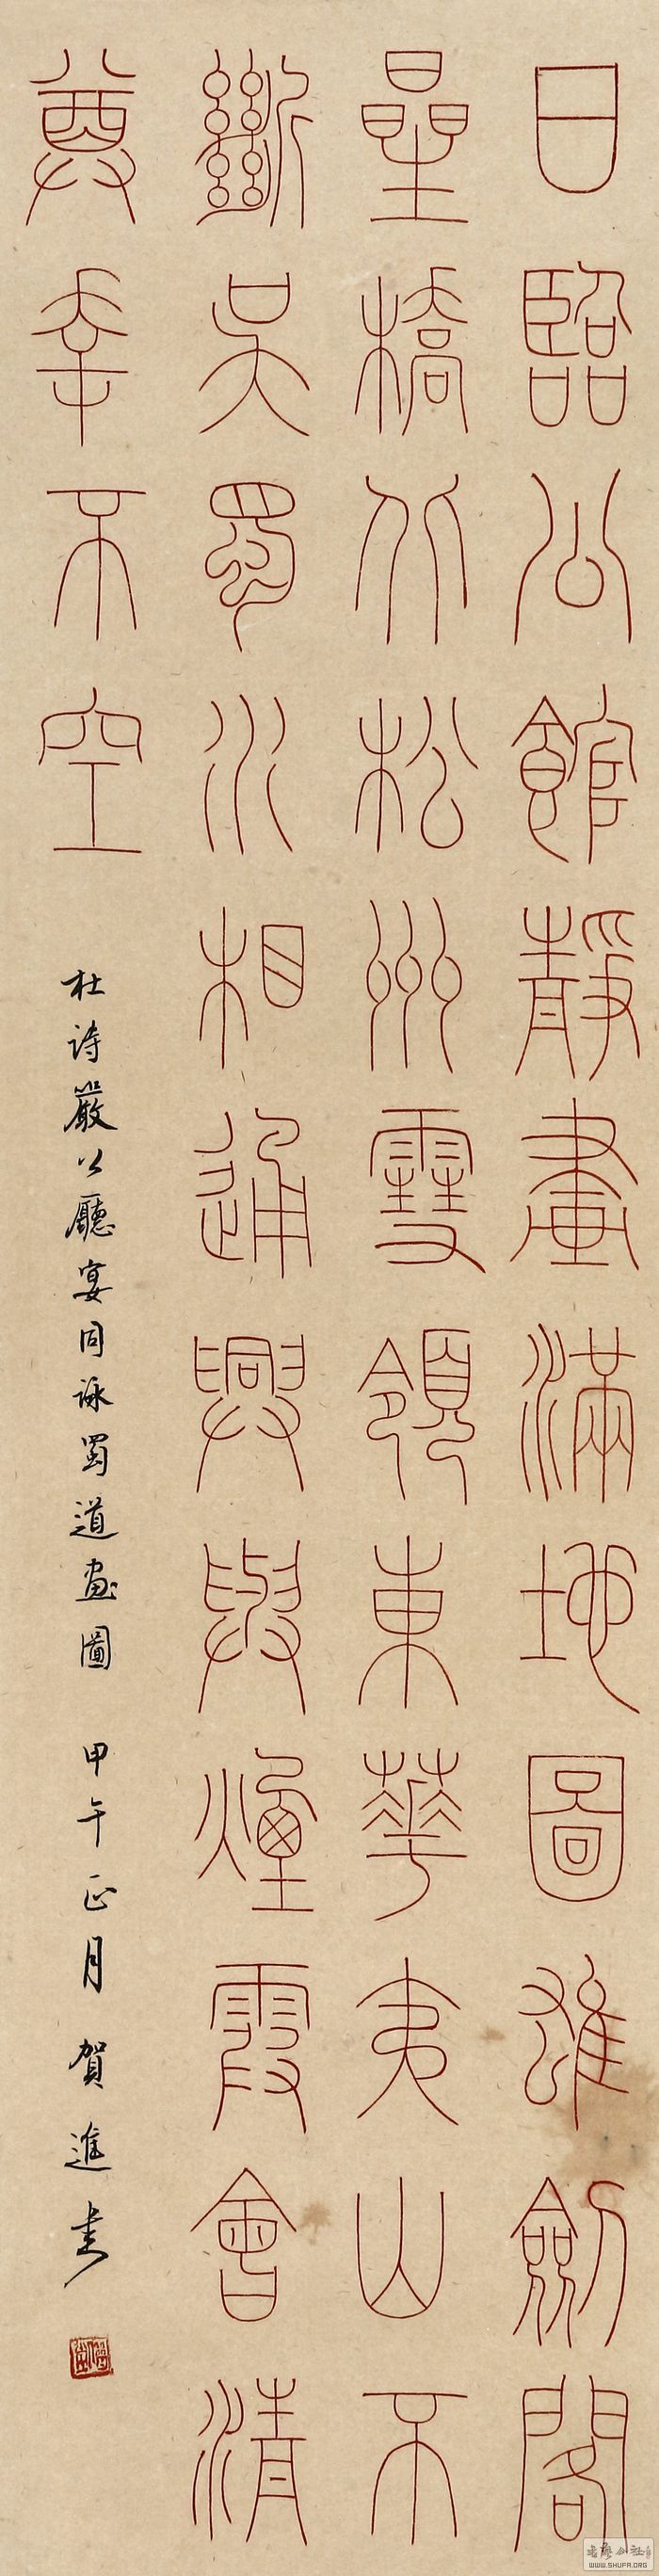 日臨公館靜畫滿地圖雄劍閣
星橋北松州雪領東華夷山不
斷吳蜀水相通興與煙霞會清
尊幸不空
杜詩嚴公廳宴同詠蜀道畫圖 甲午正月 賀進書
WWW.SHUFA.ORG